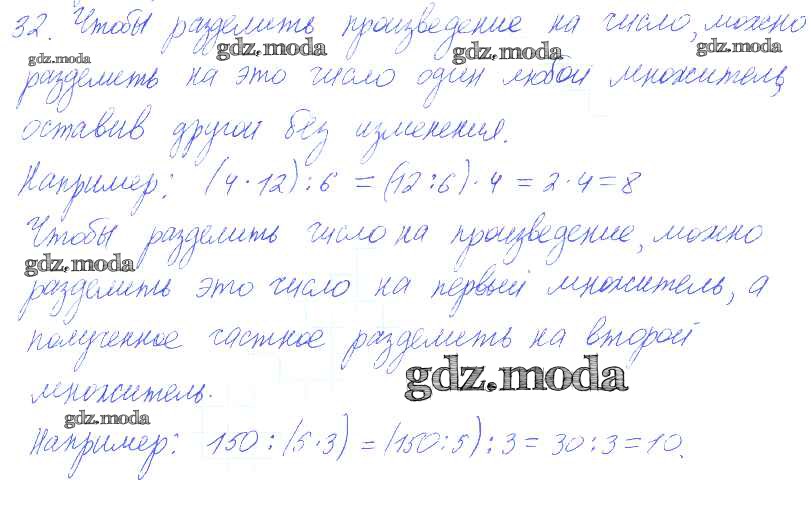 32. Чтобы разделить произведение на число, можно
gdz.moda gdz.moda gdz.moda gdz.moda
разделить на это число один любой множитель,
оставив другой без изменения.
Например: (4·12):6 = (12:6)·4 = 2·4=8
Чтобы разделить число на произведение, можно
gdz.moda
разделить это число на первый множитель, а
полученное частное разделить на второй
множитель.
gdz.moda
gdz.moda
Например: 150:(5·3) = (150:5):3 = 30:3=10.